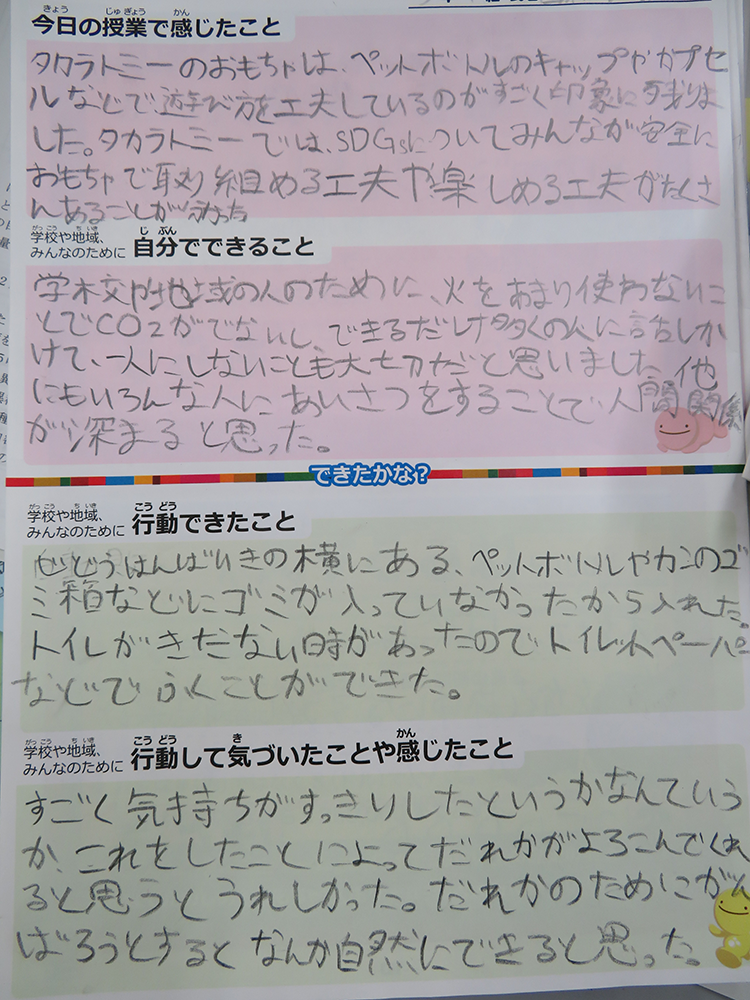 今日の授業で感じたこと
タカラトミーのおもちゃは、ペットボトルのキャップやカプセ
ルなどで遊び方を工夫しているのがすごく印象に残りま
した。タカラトミーでは、SDGsについてみんなが安全に
おもちゃで取り組める工夫や楽しめる工夫がたくさ
んあることが分かった
学校や地域、
みんなのために 自分でできること
学校や地域の人のために、火をあまり使わないこ
とでCO2がでないし、できるだけ多くの人に話しか
けて、一人にしないことも大切だと思いました。他
にもいろんな人にあいさつをすることで、人間関係
が深まると思った。
できたかな?
学校や地域、
みんなのために 行動できたこと
じどうはんばいきの横にある、ペットボトルやカンのゴ
ミ箱などにゴミが入っていなかったから入れた。
トイレがきたない時があったのでトイレットペーパー
などでふくことができた。
学校や地域、
みんなのために 行動して気づいたことや感じたこと
すごく気持ちがすっきりしたというかなんていう
か、これをしたことによってだれかがよろこんでくれ
ると思うとうれしかった。だれかのためにがん
ばろうとするとなんか自然にできると思った。